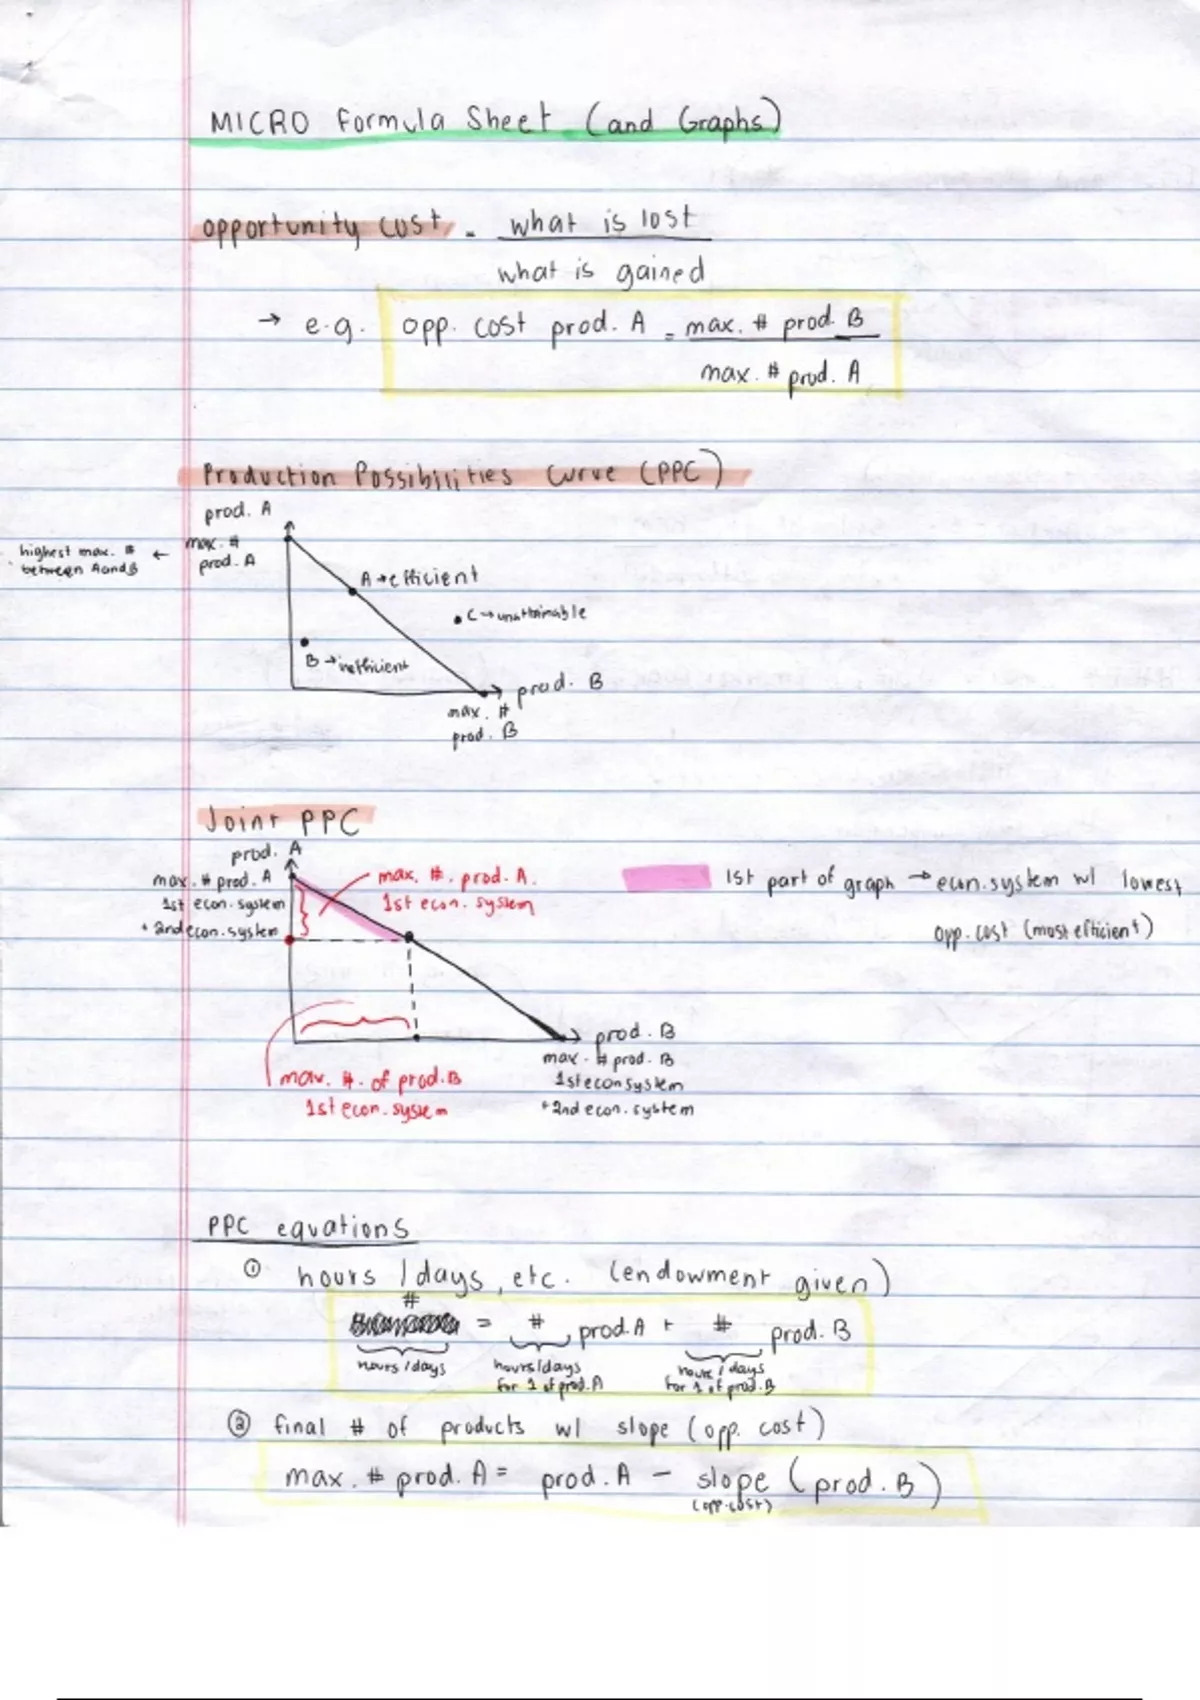 MICRO Formula Sheet (and Graphs)
opportunity cost = what is lost
what is gained
→ e.g. opp. cost prod. A = max. # prod. B
max. # prod. A
Production Possibilities Curve (PPC)
prod. A
max. #
prod. A
highest max. # ←
between A and B
A → efficient
• C → unattainable
B → inefficient
prod. B
max. #
prod. B
Joint PPC
prod. A
max. # prod. A
1st econ. system
+ 2nd econ. system
max. #. prod. A.
1st econ. system
1st part of graph → econ. system w/ lowest
opp. cost (most efficient)
prod. B
max. # prod. B
1st econ system
+ 2nd econ. system
max. #. of prod. B
1st econ. system
PPC equations
① hours / days, etc. (endowment given)
#
= # prod. A + # prod. B
hours / days
hours/days
for 1 of prod. A
hours / days
for 1 of prod. B
② final # of products w/ slope (opp. cost)
max. # prod. A = prod. A - slope (prod. B)
(opp. cost)